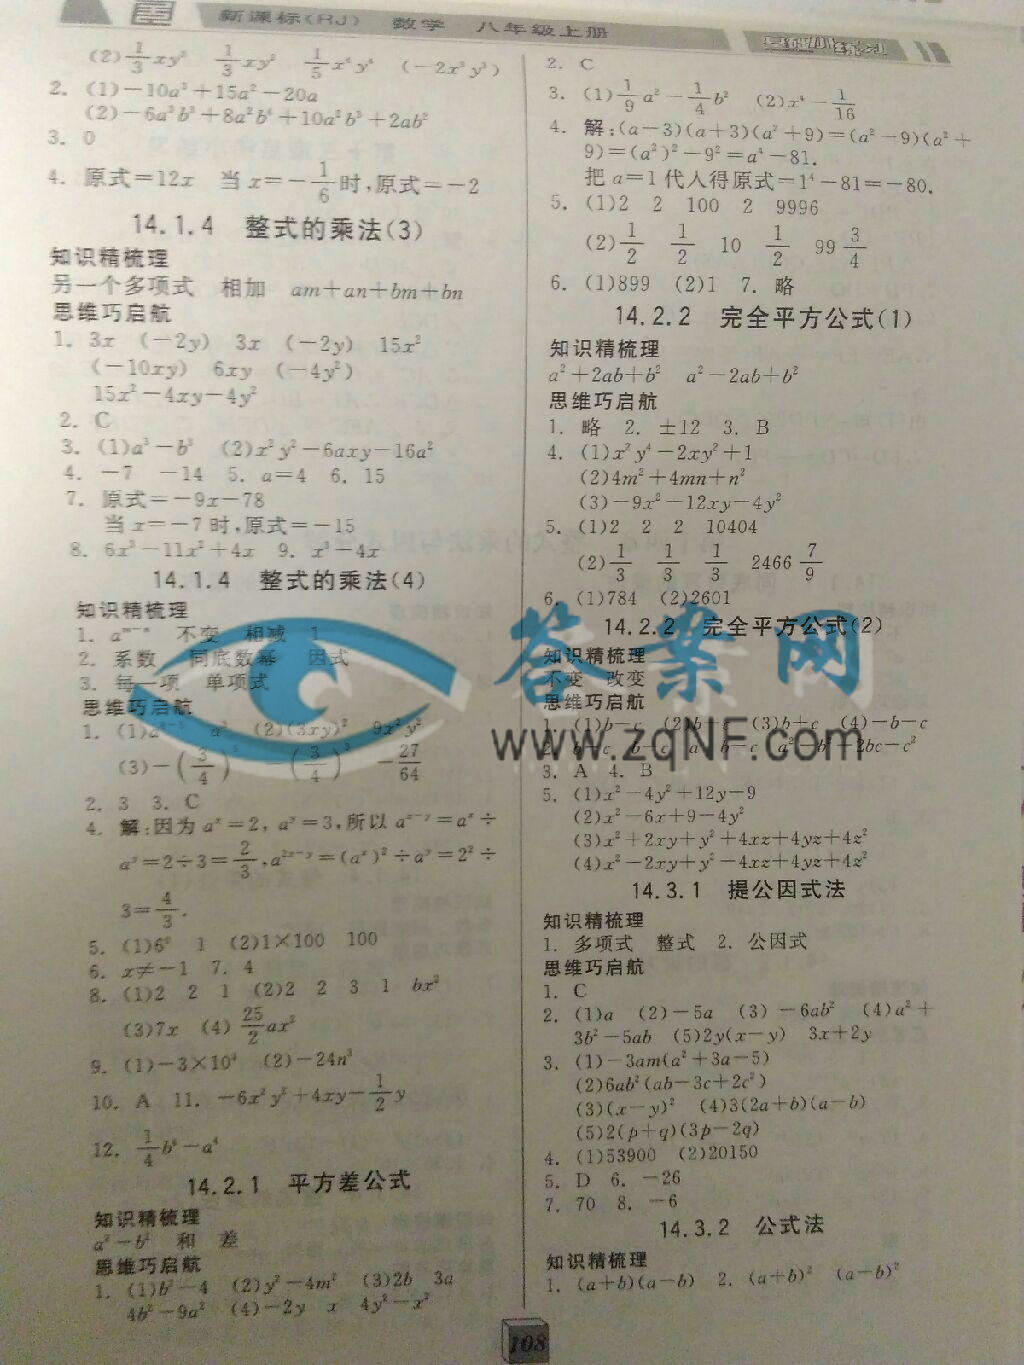 新课标(RJ) 数学 八年级上册
基础训练
(2) 1/3 xy² 1/3 xy² 1/5 x⁴y⁴ (-2x³y³)
2. (1)-10a³+15a²-20a
(2)-6a³b³+8a²b⁴+10a²b³+2ab²
3. 0
4. 原式=12x 当x=-1/6时,原式=-2
14.1.4 整式的乘法(3)
知识精梳理
另一个多项式 相加 am+an+bm+bn
思维巧启航
1. 3x (-2y) 3x (-2y) 15x²
(-10xy) 6xy (-4y²)
15x²-4xy-4y²
2. C
3. (1)a³-b³ (2)x²y²-6axy-16a²
4. -7 -14 5. a=4 6. 15
7. 原式=-9x-78
当x=-7时,原式=-15
8. 6x³-11x²+4x 9. x³-4x
14.1.4 整式的乘法(4)
知识精梳理
1. aᵐ⁻ⁿ 不变 相减 1
2. 系数 同底数幂 因式
3. 每一项 单项式
思维巧启航
1. (1) a³ (2)(3xy)² 9x²y²
(3)-(3/4) (3/4)³ -27/64
2. 3 3. C
4. 解:因为aˣ=2, aʸ=3,所以aˣ⁻ʸ=aˣ÷
aʸ=2÷3=2/3,a²ˣ⁻ʸ=(aˣ)²÷aʸ=2²÷
3=4/3.
5. (1)6⁰ 1 (2)1×100 100
6. x≠-1 7. 4
8. (1)2 2 1 (2)2 2 3 1 bx²
(3)7x (4) 25/2 ax²
9. (1)-3×10⁴ (2)-24n³
10. A 11. -6x²y²+4xy-1/2 y
12. 1/4 b⁶-a⁴
14.2.1 平方差公式
知识精梳理
a²-b² 和 差
思维巧启航
1. (1)b²-4 (2)y²-4m² (3)2b 3a
4b²-9a² (4)-2y x 4y²-x²
2. C
3. (1)1/9 a²-1/4 b² (2)x⁴-1/16
4. 解:(a-3)(a+3)(a²+9)=(a²-9)(a²+
9)=(a²)²-9²=a⁴-81.
把a=1代入得原式=1⁴-81=-80.
5. (1)2 2 100 2 9996
(2)1/2 1/2 10 1/2 99 3/4
6. (1)899 (2)1 7. 略
14.2.2 完全平方公式(1)
知识精梳理
a²+2ab+b² a²-2ab+b²
思维巧启航
1. 略 2. ±12 3. B
4. (1)x²y⁴-2xy²+1
(2)4m²+4mn+n²
(3)-9x²-12xy-4y²
5. (1)2 2 2 10404
(2)1/3 1/3 1/3 2466 7/9
6. (1)784 (2)2601
14.2.2 完全平方公式(2)
知识精梳理
不变 改变
思维巧启航
1. (1)b-c (2)b-c (3)b+c (4)-b-c
2. b-c b-c a b-c a²-b²+2bc-c²
3. A 4. B
5. (1)x²-4y²+12y-9
(2)x²-6x+9-4y²
(3)x²+2xy+y²+4xz+4yz+4z²
(4)x²-2xy+y²-4xz+4yz+4z²
14.3.1 提公因式法
知识精梳理
1. 多项式 整式 2. 公因式
思维巧启航
1. C
2. (1)a (2)-5a (3) -6ab² (4)a²+
3b²-5ab (5)2y(x-y) 3x+2y
3. (1)-3am(a²+3a-5)
(2)6ab²(ab-3c+2c²)
(3)(x-y)² (4)3(2a+b)(a-b)
(5)2(p+q)(3p-2q)
4. (1)53900 (2)20150
5. D 6. -26
7. 70 8. -6
14.3.2 公式法
知识精梳理
1. (a+b)(a-b) 2. (a+b)² (a-b)²
答案网
www.zqNF.com
108